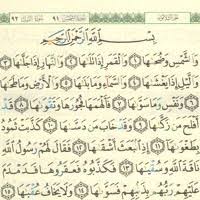 الجزء الثلاثون سورة الشمس ٩١ سورة الليل ٩٢
بِسْمِ ٱللَّهِ ٱلرَّحْمَٰنِ ٱلرَّحِيمِ
وَٱلشَّمْسِ وَضُحَىٰهَا ۝١ وَٱلْقَمَرِ إِذَا تَلَىٰهَا ۝٢ وَٱلنَّهَارِ إِذَا جَلَّىٰهَا ۝٣
وَٱلَّيْلِ إِذَا يَغْشَىٰهَا ۝٤ وَٱلسَّمَآءِ وَمَا بَنَىٰهَا ۝٥ وَٱلْأَرْضِ وَمَا طَحَىٰهَا ۝٦
وَنَفْسٍ وَمَا سَوَّىٰهَا ۝٧ فَأَلْهَمَهَا فُجُورَهَا وَتَقْوَىٰهَا ۝٨ قَدْ
أَفْلَحَ مَن زَكَّىٰهَا ۝٩ وَقَدْ خَابَ مَن دَسَّىٰهَا ۝١٠ كَذَّبَتْ ثَمُودُ
بِطَغْوَىٰهَآ ۝١١ إِذِ ٱنۢبَعَثَ أَشْقَىٰهَا ۝١٢ فَقَالَ لَهُمْ رَسُولُ ٱللَّهِ
نَاقَةَ ٱللَّهِ وَسُقْيَٰهَا ۝١٣ فَكَذَّبُوهُ فَعَقَرُوهَا فَدَمْدَمَ
عَلَيْهِمْ رَبُّهُم بِذَنۢبِهِمْ فَسَوَّىٰهَا ۝١٤ وَلَا يَخَافُ عُقْبَٰهَا ۝١٥